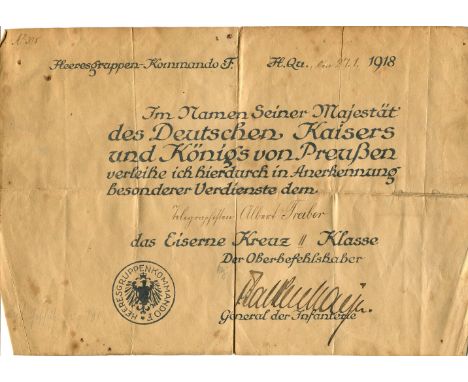 Heeresgruppen-Kommando F. H.Qu., den 27.1. 1918
Im Namen Seiner Majestät
des Deutschen Kaisers
und Königs von Preußen
verleihe ich hierdurch in Anerkennung
besonderer Verdienste dem
Telegraphisten Albert Traber
das Eiserne Kreuz II Klasse
Der Oberbefehlshaber
HEERESGRUPPENKOMMANDO F.
Falkenhayn.
General der Infanterie